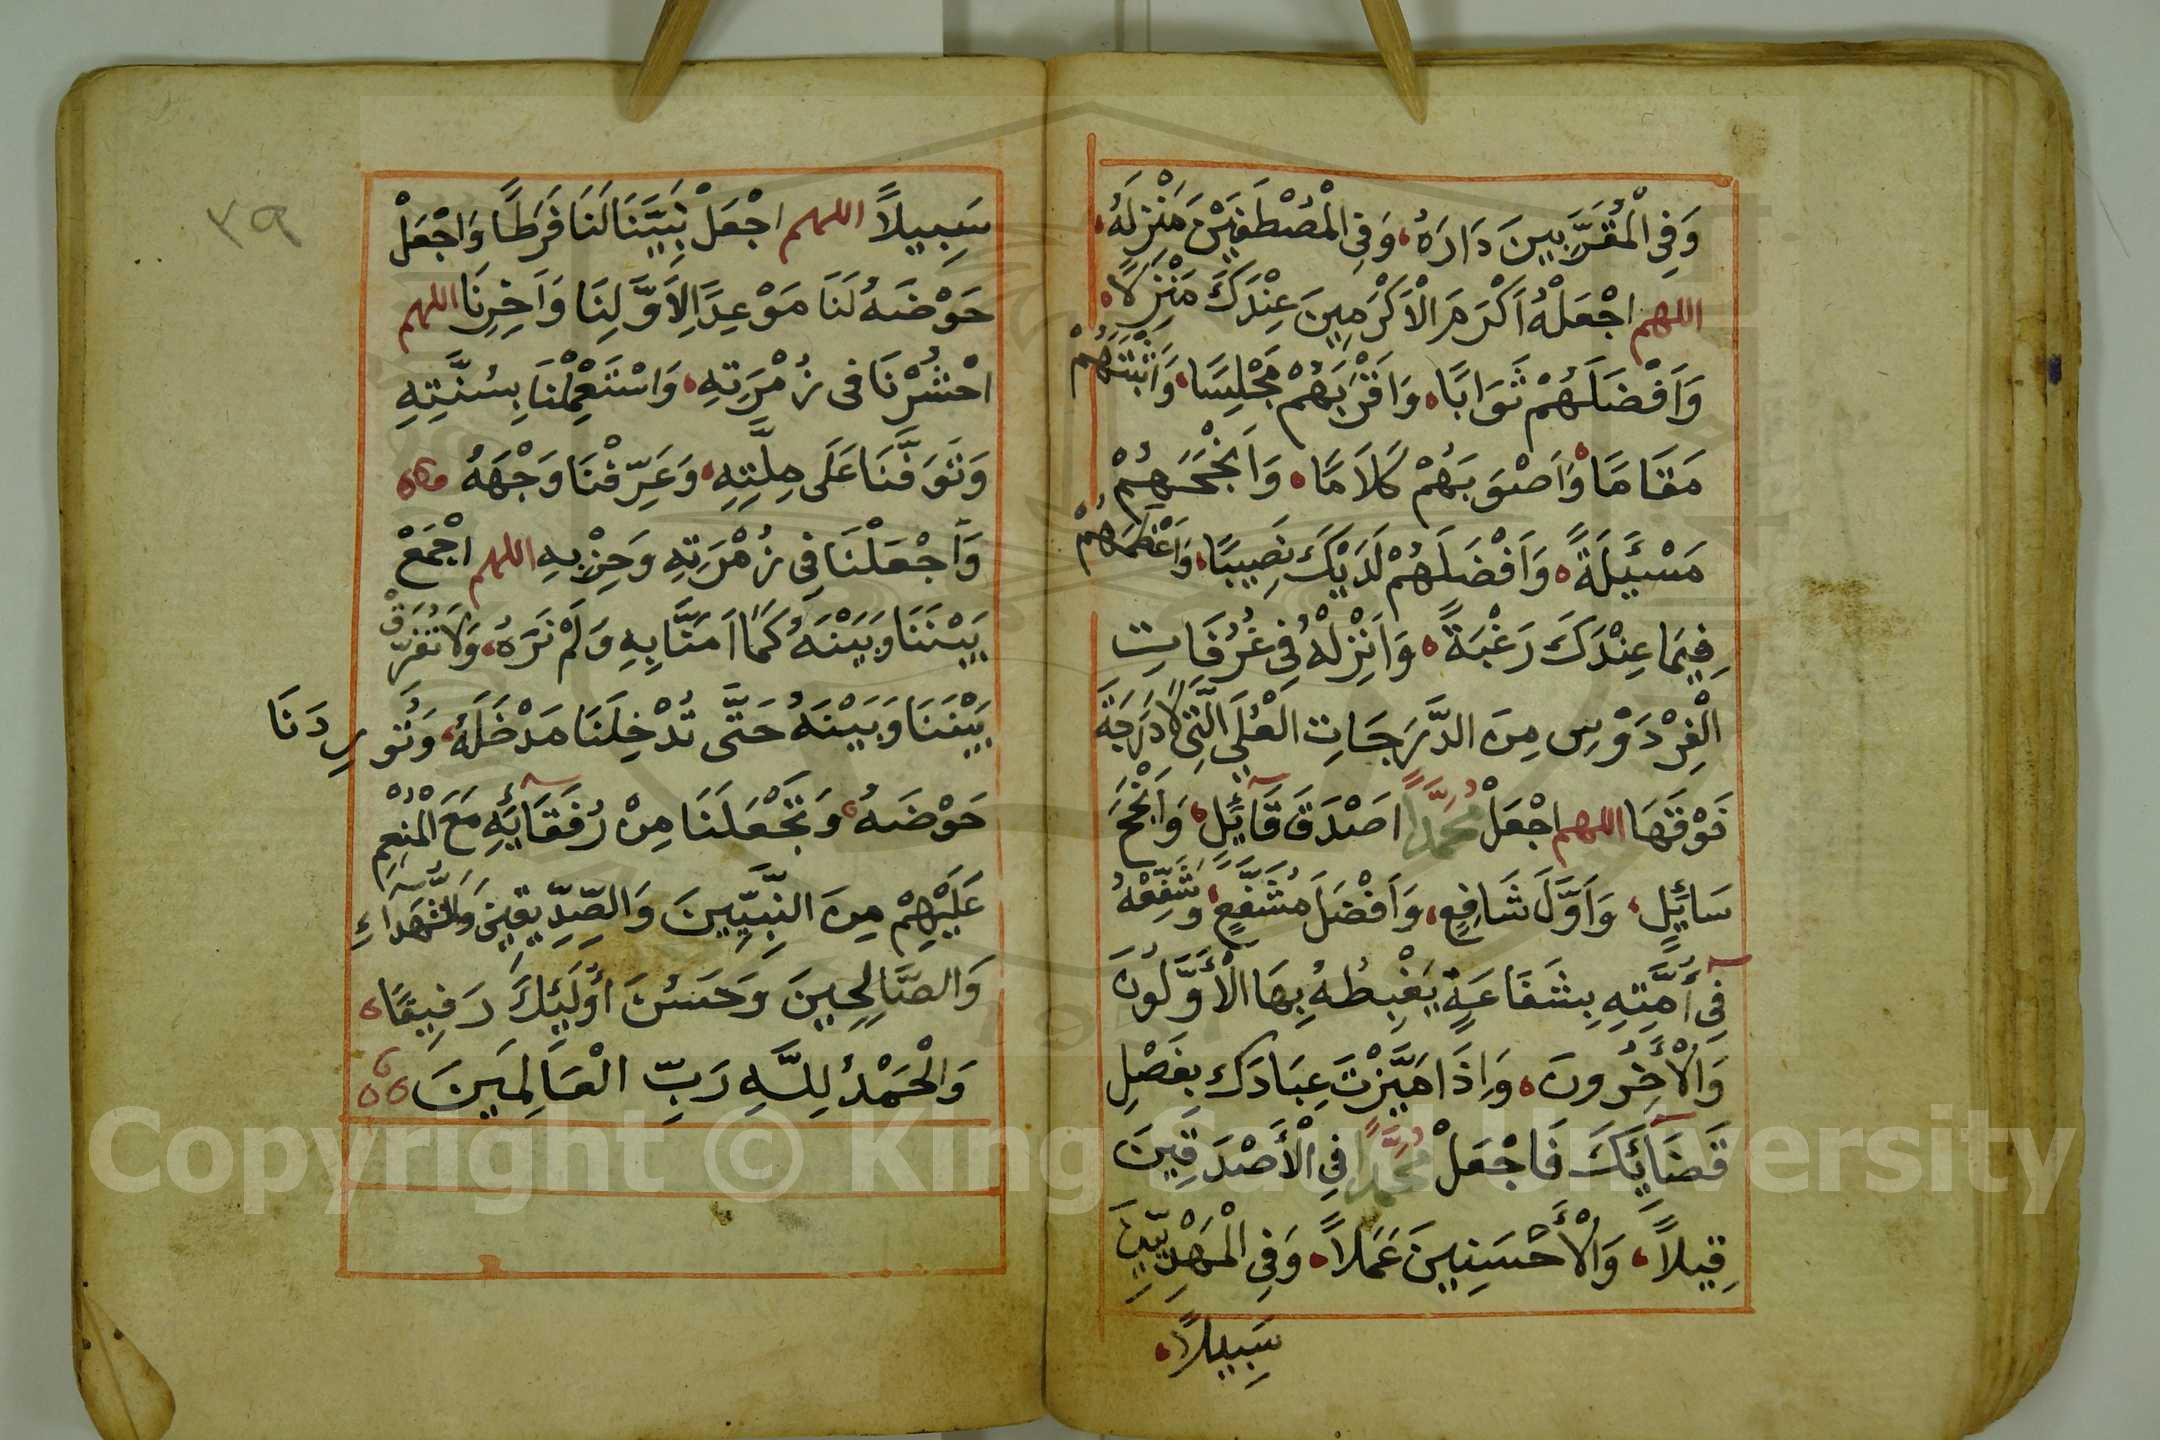 وَفِي الْمُقَرَّبِينَ دَارَهُ، وَفِي الْمُصْطَفَيْنَ مَنْزِلَهُ،
اللهم اجْعَلْهُ اَكْرَمَ الْاَكْرَمِينَ عِنْدَكَ مَنْزِلًا
وَاَفْضَلَهُمْ ثَوَابًا، وَاَقْرَبَهُمْ مَجْلِسًا، وَاَثْبَتَهُمْ
مَقَامًا، وَاَصْوَبَهُمْ كَلَامًا، وَاَنْجَحَهُمْ
مَسْئَلَةً، وَاَفْضَلَهُمْ لَدَيْكَ نَصِيبًا، وَاَعْظَمَهُمْ
فِيمَا عِنْدَكَ رَغْبَةً، وَاَنْزِلْهُ فِي غُرُفَاتِ
الْفِرْدَوْسِ مِنَ الدَّرَجَاتِ الْعُلَى الَّتِي لَا دَرَجَةَ
فَوْقَهَا اللهم اجْعَلْ مُحَمَّدًا اَصْدَقَ قَآئِلٍ، وَاَنْجَحَ
سَائِلٍ، وَاَوَّلَ شَافِعٍ، وَاَفْضَلَ مُشَفَّعٍ، وَشَفِّعْهُ
فِي أُمَّتِهِ بِشَفَاعَةٍ يَغْبِطُهُ بِهَا الْأَوَّلُونَ
وَالْأَخِرُونَ، وَاِذَا مَيَّزْتَ عِبَادَكَ بِفَصْلِ
قَضَآئِكَ فَاجْعَلْ مُحَمَّدًا فِي الْأَصْدَقِينَ
قِيلاً، وَالْأَحْسَنِينَ عَمَلاً، وَفِي الْمَهْدِيِّينَ
سَبِيلاً،
٣٩
سَبِيلاً اللهم اجْعَلْ نَبِيَّنَا لَنَا فَرَطًا وَاجْعَلْ
حَوْضَهُ لَنَا مَوْعِدًا لِاَوَّلِنَا وَاَخِرِنَا اللهم
احْشُرْنَا فِى زُمْرَتِهِ، وَاسْتَعْمِلْنَا بِسُنَّتِهِ
وَتَوَفَّنَا عَلَى مِلَّتِهِ، وَعَرِّفْنَا وَجْهَهُ
وَاجْعَلْنَا فِي زُمْرَتِهِ وَحِزْبِهِ اللهم اجْمَعْ
بَيْنَنَا وَبَيْنَهُ كَمَا اَمَنَّا بِهِ وَلَمْ نَرَهُ، وَلَا تُفَرِّقْ
بَيْنَنَا وَبَيْنَهُ حَتَّى تُدْخِلَنَا مَدْخَلَهُ، وَتُورِدَنَا
حَوْضَهُ، وَتَجْعَلَنَا مِنْ رُفَقَآئِهِ مَعَ الْمُنْعَمِ
عَلَيْهِمْ مِنَ النَّبِيِّينَ وَالصِّدِّيقِينَ وَالشُّهَدَآءِ
وَالصَّالِحِينَ وَحَسُنَ أُولَئِكَ رَفِيقًا،
وَالْحَمْدُ لِلَّهِ رَبِّ الْعَالَمِينَ
Copyright © King Saud University